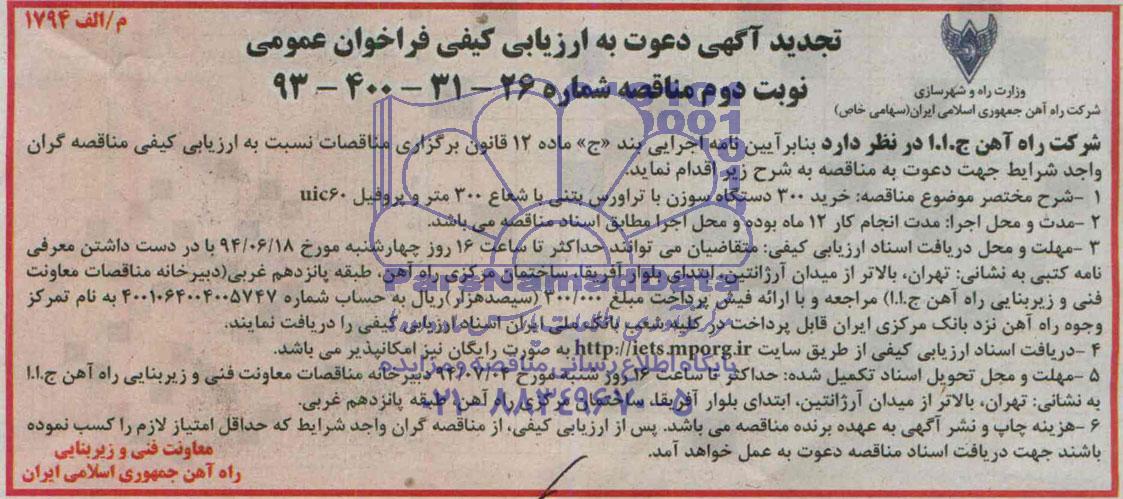 م/الف ۱۷۹۴
وزارت راه و شهرسازی
شرکت راه آهن جمهوری اسلامی ایران(سهامی خاص)
تجدید آگهی دعوت به ارزیابی کیفی فراخوان عمومی
نوبت دوم مناقصه شماره ۲۶ - ۳۱ - ۴۰۰ - ۹۳
شرکت راه آهن ج.ا.ا در نظر دارد بنابرآیین نامه اجرایی بند «ج» ماده ۱۲ قانون برگزاری مناقصات نسبت به ارزیابی کیفی مناقصه گران
واجد شرایط جهت دعوت به مناقصه به شرح زیر اقدام نماید.
۱ -شرح مختصر موضوع مناقصه: خرید ۳۰۰ دستگاه سوزن با تراورس بتنی با شعاع ۳۰۰ متر و پروفیل uic۶۰
۲ -مدت و محل اجرا: مدت انجام کار ۱۲ ماه بوده و محل اجرا مطابق اسناد مناقصه می باشد.
۳ -مهلت و محل دریافت اسناد ارزیابی کیفی: متقاضیان می توانند حداکثر تا ساعت ۱۶ روز چهارشنبه مورخ ۹۴/۰۶/۱۸ با در دست داشتن معرفی
نامه کتبی به نشانی: تهران، بالاتر از میدان آرژانتین، ابتدای بلوار آفریقا، ساختمان مرکزی راه آهن، طبقه پانزدهم غربی(دبیرخانه مناقصات معاونت
فنی و زیربنایی راه آهن ج.ا.ا) مراجعه و با ارائه فیش پرداخت مبلغ ۳۰۰/۰۰۰ (سیصدهزار)ریال به حساب شماره ۴۰۰۱۰۶۴۰۰۴۰۰۵۷۴۷ به نام تمرکز
وجوه راه آهن نزد بانک مرکزی ایران قابل پرداخت در کلیه شعب بانک ملی ایران اسناد ارزیابی کیفی را دریافت نمایند.
۴ -دریافت اسناد ارزیابی کیفی از طریق سایت http://iets.mporg.ir به صورت رایگان نیز امکانپذیر می باشد.
۵ -مهلت و محل تحویل اسناد تکمیل شده: حداکثر تا ساعت ۱۶ روز شنبه مورخ ۹۴/۰۷/۰۴ دبیرخانه مناقصات معاونت فنی و زیربنایی راه آهن ج.ا.ا
به نشانی: تهران، بالاتر از میدان آرژانتین، ابتدای بلوار آفریقا، ساختمان مرکزی راه آهن، طبقه پانزدهم غربی.
۶ -هزینه چاپ و نشر آگهی به عهده برنده مناقصه می باشد. پس از ارزیابی کیفی، از مناقصه گران واجد شرایط که حداقل امتیاز لازم را کسب نموده
باشند جهت دریافت اسناد مناقصه دعوت به عمل خواهد آمد.
معاونت فنی و زیربنایی
راه آهن جمهوری اسلامی ایران
ParsNamadData
پایگاه اطلاع رسانی مناقصه و مزایده
۰۲۱-۸۸۳۴۹۶۷۰-۵